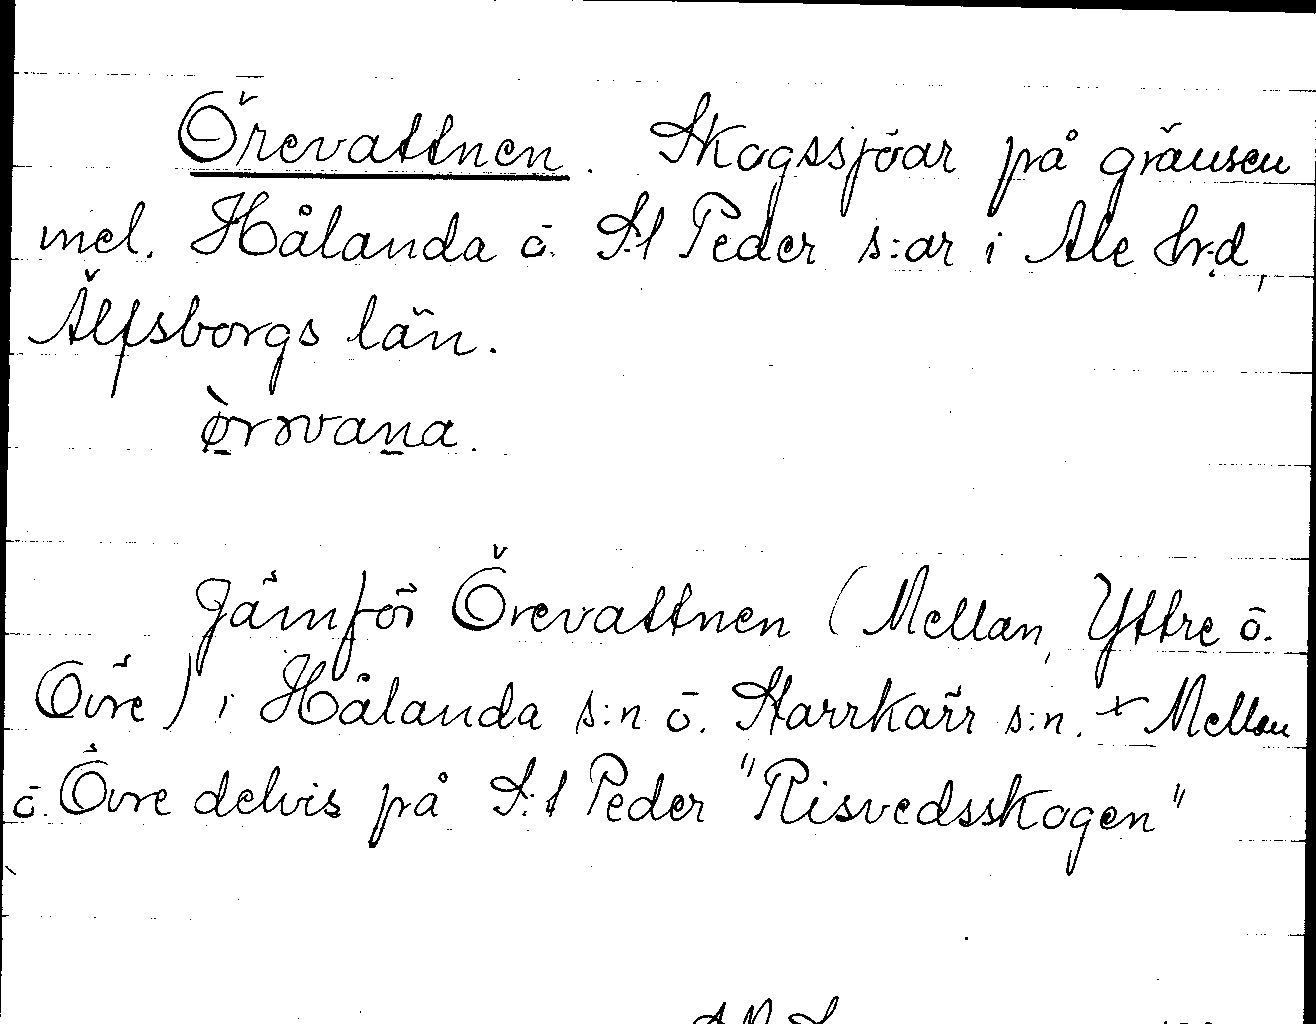 Örevattnen. Skogssjöar på gränsen
mel. Hålanda o. S:t Peder s:ar i Ale hr:d,
Älfsborgs län.
ø̀rəvana.
Jämför Örevattnen (Mellan, Yttre o.
Övre) i Hålanda s:n o. Starrkärr s:n. + Mellan
o. Övre delvis på S:t Peder "Risvedsskogen"